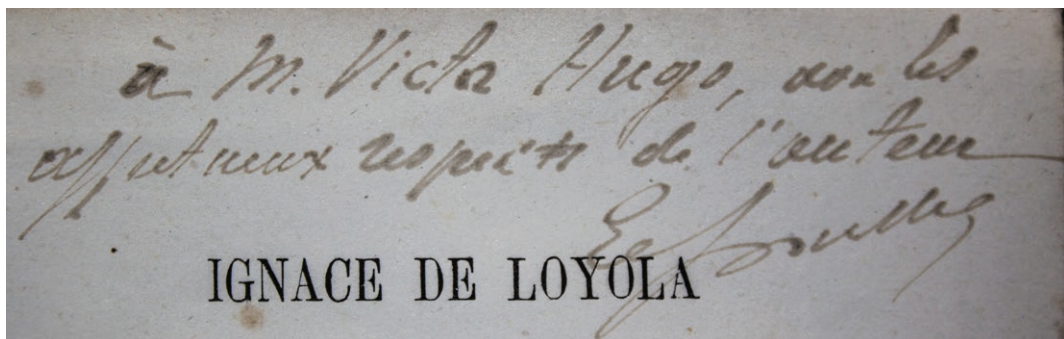 à M. Victor Hugo, avec les
affectueux respects de l'auteur
IGNACE DE LOYOLA